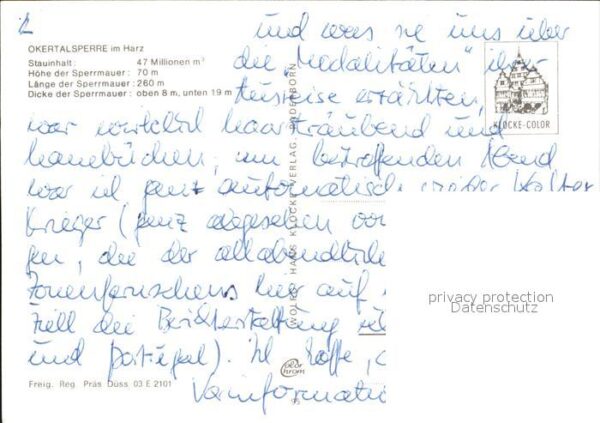 2
OKERTALSPERRE im Harz
Stauinhalt: 47 Millionen m³
Höhe der Sperrmauer: 70 m
Länge der Sperrmauer: 260 m
Dicke der Sperrmauer: oben 8 m, unten 19 m
und was sie uns über
die "Modalitäten" ihrer
Ausreise erzählten,
war wirklich haarsträubend und
hanebüchen; am betreffenden Abend
war ich ganz automatisch
Krieger (ganz abgesehen von
gen, die der allabendliche
Zonenfernsehens hier auf
die Berichterstattung
und Portugal). Ich hoffe,
Vorinformati
KLOCKE-COLOR
WOLFG. HANS KLOCKE VERLAG PADERBORN
color chrom
Freig. Reg. Präs Düss 03 E 2101
privacy protection
Datenschutz